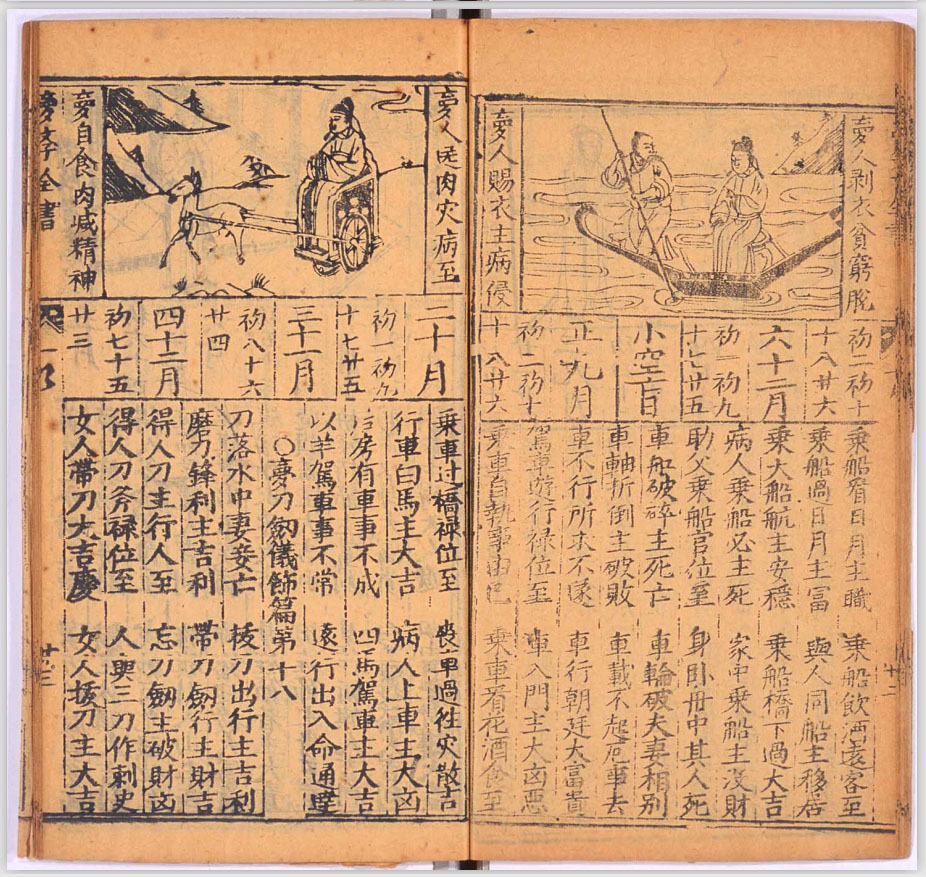 夢人剥衣貧窮脫
夢人賜衣主病侵
初二初十
十八廿六
六十二月
初一初九
十七廿五
小空亡日
正九月
初二初十
十八廿六
乘船看日月主職 乘船飲酒遠客至
乘船過日月主富 與人同船主移居
乘大船航主安穩 乘船橋下過大吉
病人乘船必主死 家中乘船主沒財
助父乘船官位 身卧舟中其人死
車船破碎主死亡 車輪破夫妻相別
車軸折倒主破敗 車載不起 事去
車不行所求不遂 車行朝廷大富貴
駕車遊行禄位至 車入門主大凶悪
乘車自執事由己 乘車看花酒食至
夢人 肉灾病至
夢自食肉减精神
二十月
初一初九
十七廿五
三十一月
初八十六
廿四
四十二月
初七十五
廿三
乘車过橋禄位至 喪車過往灾散吉
行車白馬主大吉 病人上車主大凶
房有車事不成 四馬駕車主大吉
以羊駕車事不常 遠行出入命通
○夢刀劒儀飾篇第十八
刀落水中妻妾亡 拔刀出行主吉利
磨刀鋒利主吉利 帶刀劒行主財吉
得人刀主行人至 忘刀劒主破財凶
得人刀斧禄位至 人與三刀作刺史
女人帶刀大吉慶 女人拔刀主大吉
全書
廿三